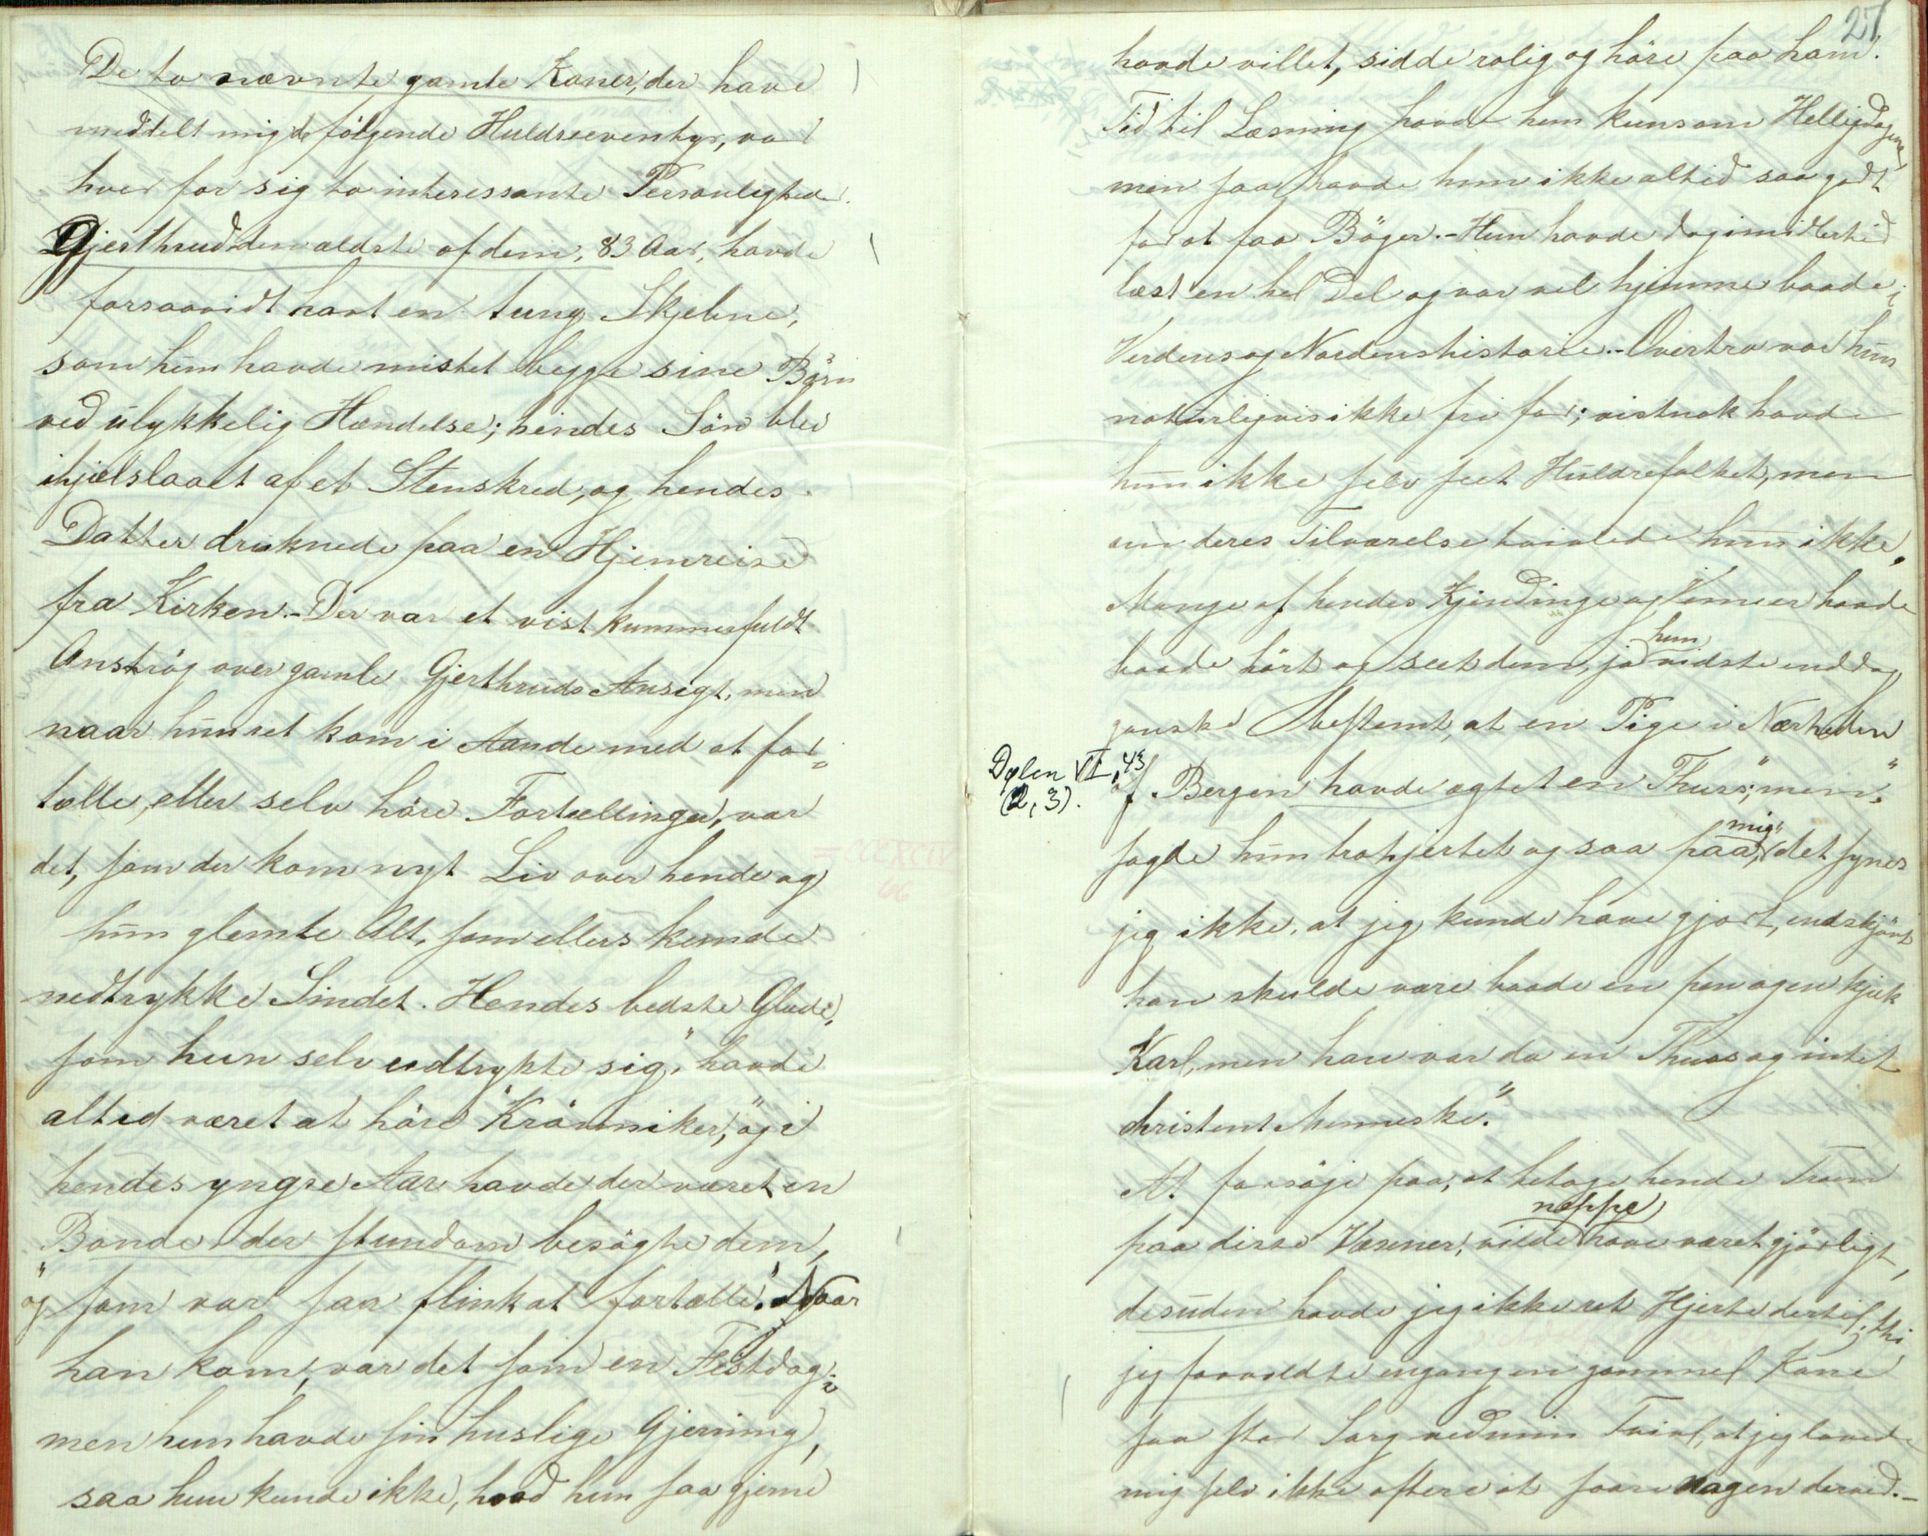 De to nævnte gamle Koner, der have
meddelt mig de følgende Huldreeventyr, var
hver for sig to interessante Personligheder.
Gjerthrud den ældste af dem, 83 Aar, havde
forsaavidt havt en tung Skjebne,
som hun havde mistet begge sine Börn
ved ulykkelig Hændelse; hendes Sön blev
ihjelslaaet af et Stenskred, og hendes
Datter druknede paa en Hjemreise
fra Kirken. - Der var et vist kummerfuldt
Anströg over gamle Gjerthruds Ansigt, men
naar hun ret kom i Aande med at for-
tælle, eller selv höre Fortellinger, var
det, som der kom nyt Liv over hende og
hun glemte Alt, som ellers kunde
nedtrykke Sindet. Hendes bedste Glæde,
som hun selv udtrykte sig, "havde
altid været at höre Krönniker," og i
hendes yngre Aar havde der været en
Bonde, der stundom besögte dem,
"og som var saa flink at fortælle." Naar
han kom, var det som en Festdag;
men hun havde sin huslige Gjerning,
saa hun kunde ikke, hvad hun saa gjerne
27
havde villet, sidde rolig og höre paa ham.
Tid til Læsning havde hun kun om Helligdagene,
men saa havde hun ikke altid saa godt
for at faa Böger. - Hun havde dog imidlertid
læst en hel Del og var vel hjemme baade i
Verdens og Nordens historie. - Overtro var hun
naturligvis ikke fri for; vistnok havde
hun ikke selv seet Huldrefolket, men
om deres Tilværelse tvivlede hun ikke.
Mange af hendes Kjendinge og Venner havde
baade hört og seet dem, ja hun vidste endog
ganske bestemt, at en Pige i Nærheden
Dølen VI, 43
(2, 3).
af Bergen havde ægtet en "Thuss", "men,"
sagde hun trohjertet og saa paa mig, "det synes
jeg ikke, at jeg kunde have gjort, endskjönt
han skulde være baade en pen og en kjæk
Karl, men han var da en Thuss og intet
christent Menneske."
At forsöge paa, at betage hende Troen
paa disse Væsener, vilde neppe have været gjörligt,
desuden havde jeg ikke ret Hjerte dertil, thi
jeg forvoldte engang en gammel Kone
saa stor Sorg ved min Tvivl, at jeg lovede
mig selv ikke oftere at saare nogen derved. -